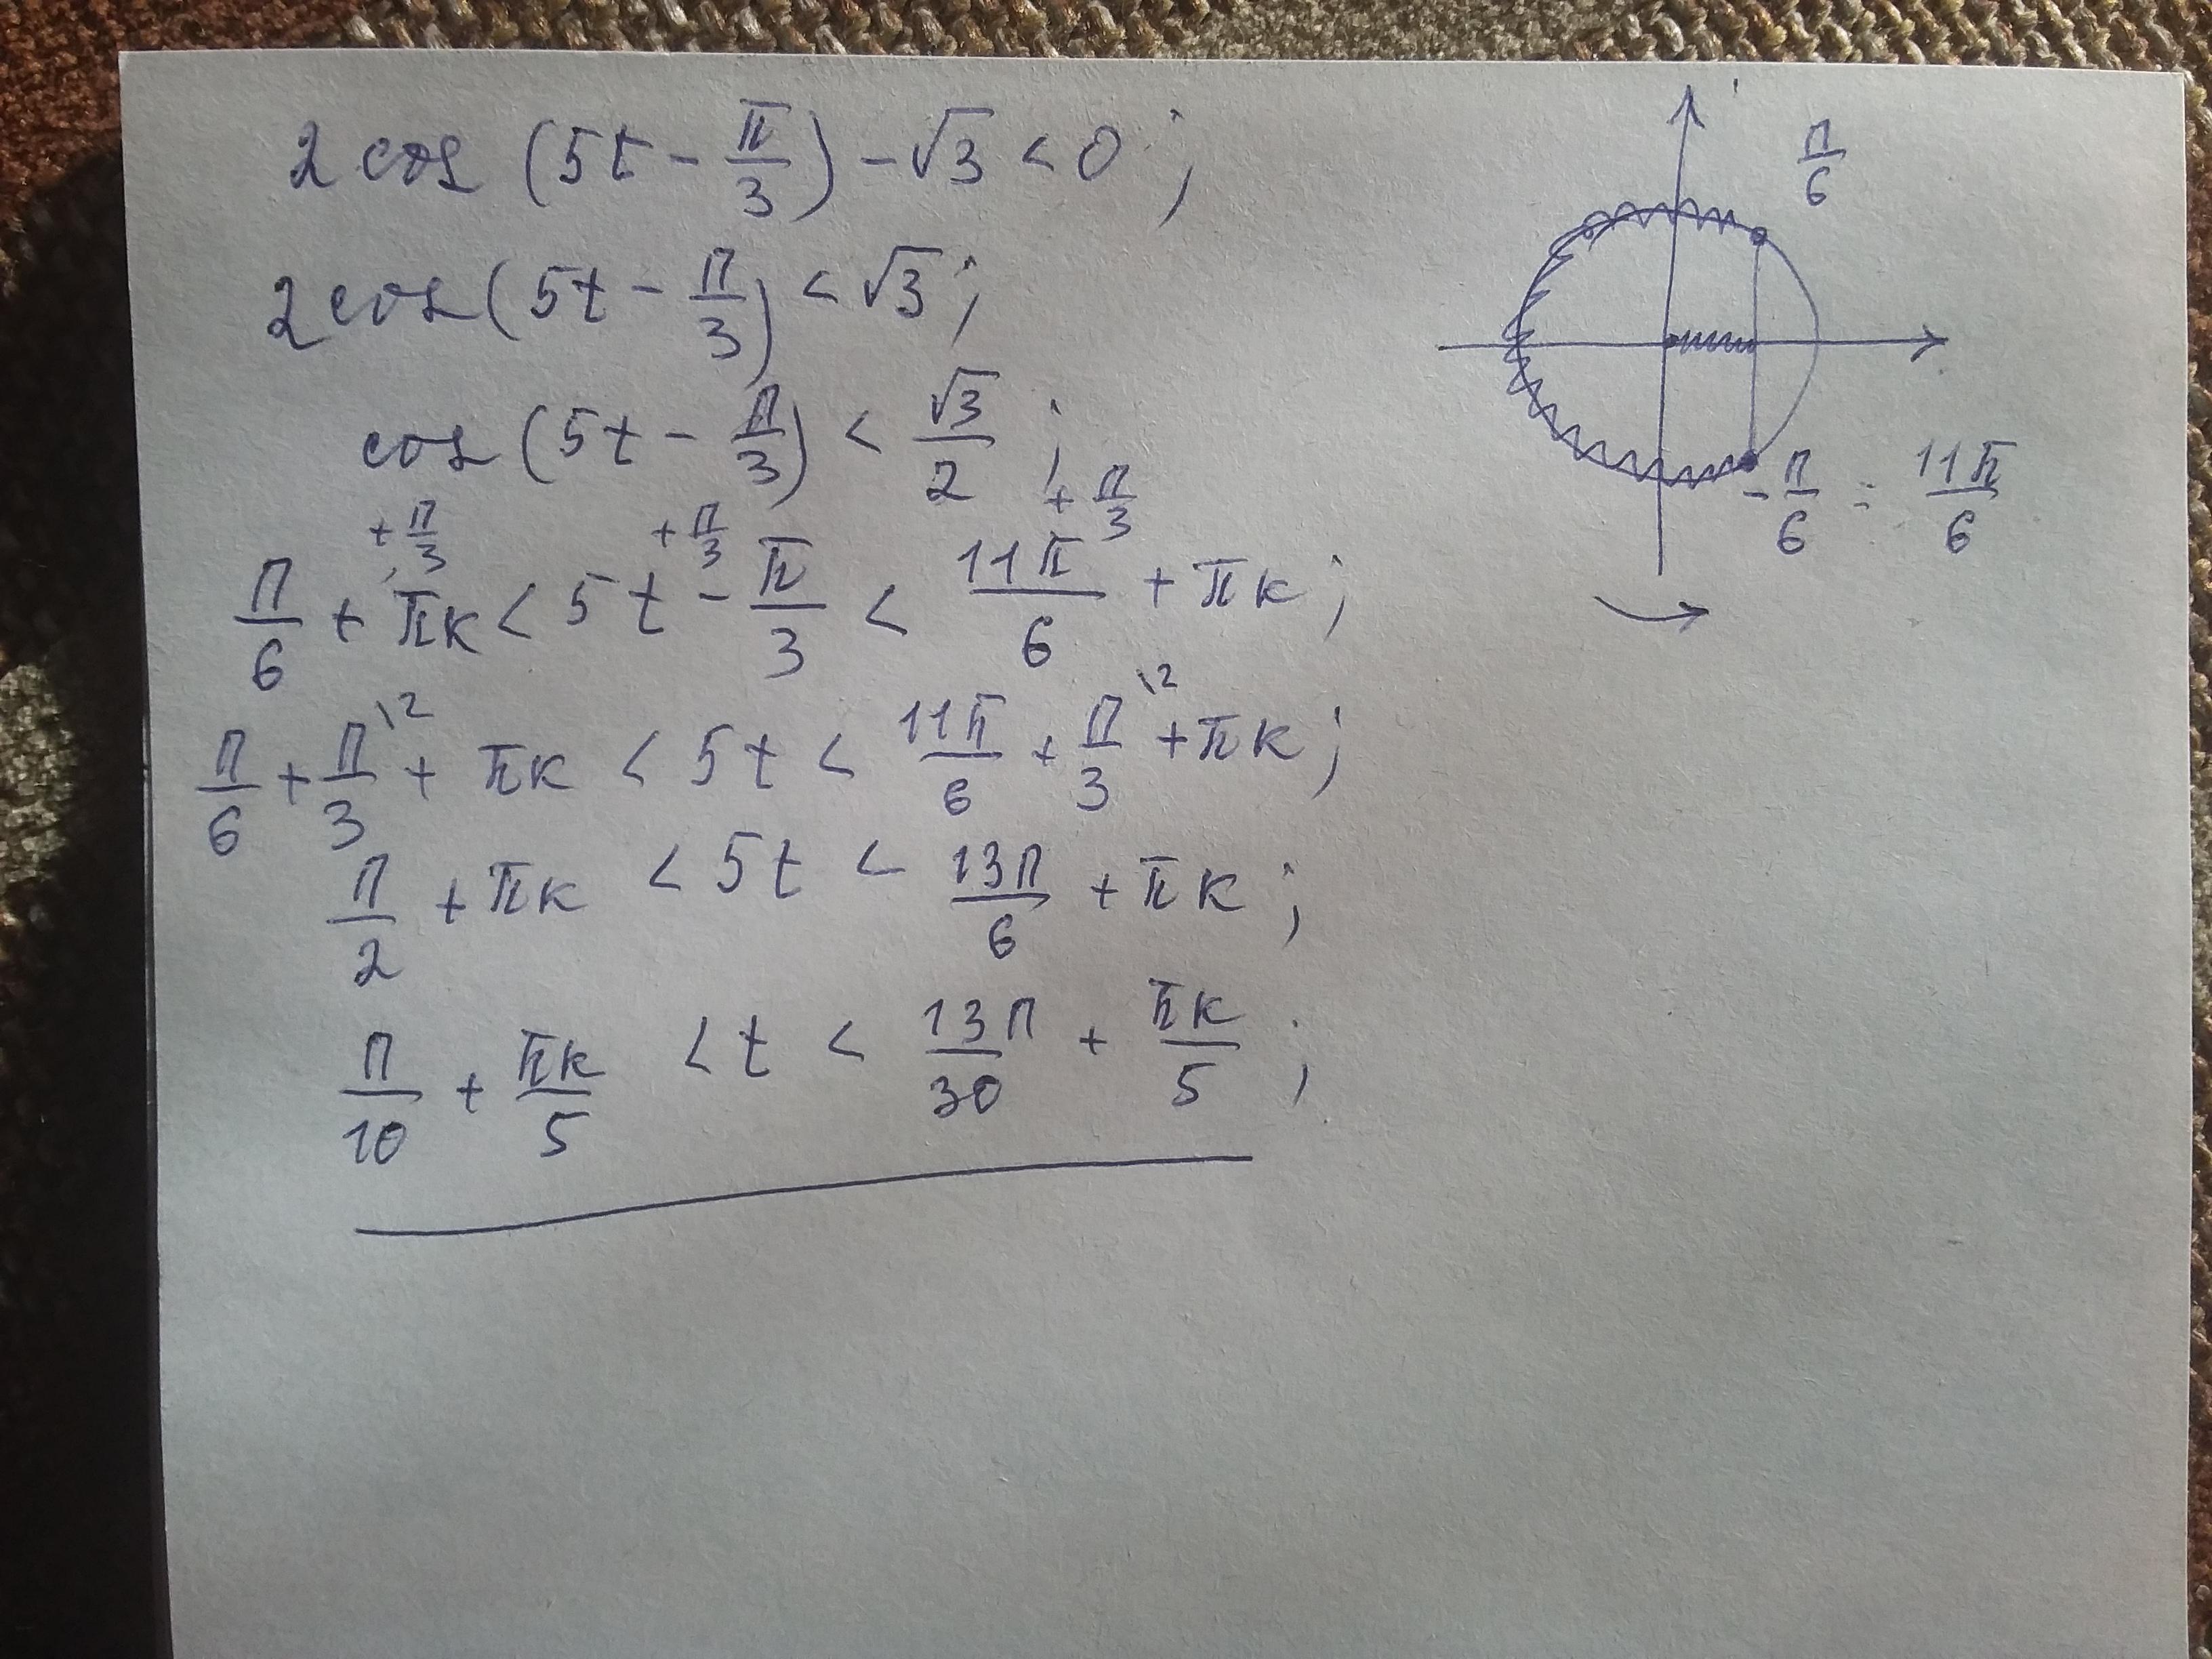 2 cos (5t - π/3) - √3 < 0 ;
2 cos (5t - π/3) < √3 ;
cos (5t - π/3) < √3/2 ;
+ π/3 + π/3 + π/3
π/6 + πк < 5t - π/3 < 11π/6 + πк ;
π/6 + π/3 \2 + πк < 5t < 11π/6 + π/3 \2 + πк ;
π/2 + πк < 5t < 13π/6 + πк ;
π/10 + πк/5 < t < 13π/30 + πк/5 ;
π/6
- π/6 = 11π/6